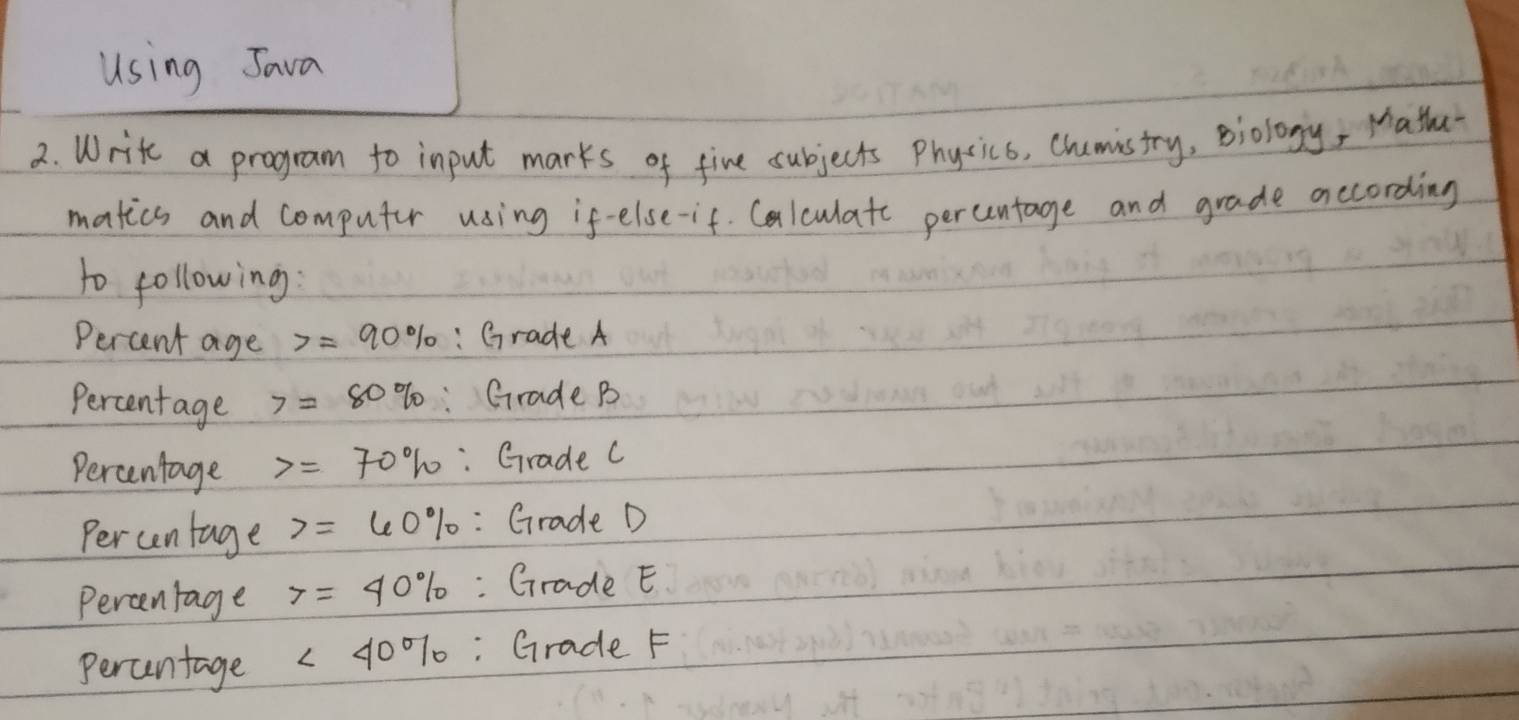 Using Java
2. Write a program to input marks of five subjects Physics, Chemistry, Biology, Mathe-
matics and Computer using if-else-if. Calculate percentage and grade according
to following:
Percentage >= 90% : Grade A
Percentage >= 80% : Grade B
Percentage >= 70% : Grade C
Percentage >= 60% : Grade D
Percentage >= 40% : Grade E
Percentage < 40% : Grade F